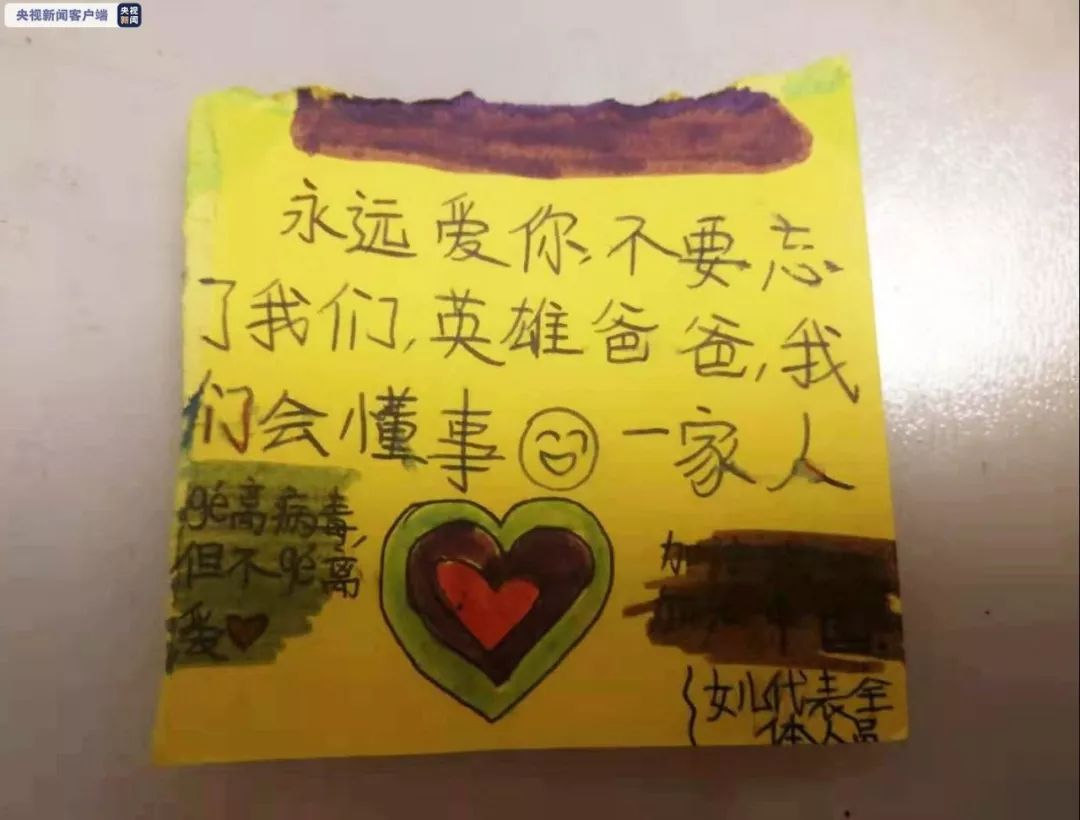 央视新闻客户端
央视
新闻
永远爱你,不要忘
了我们,英雄爸爸,我
们会懂事 一家人
gé离病毒,
但不gé离
爱
加
中国
女儿代表全
体人员